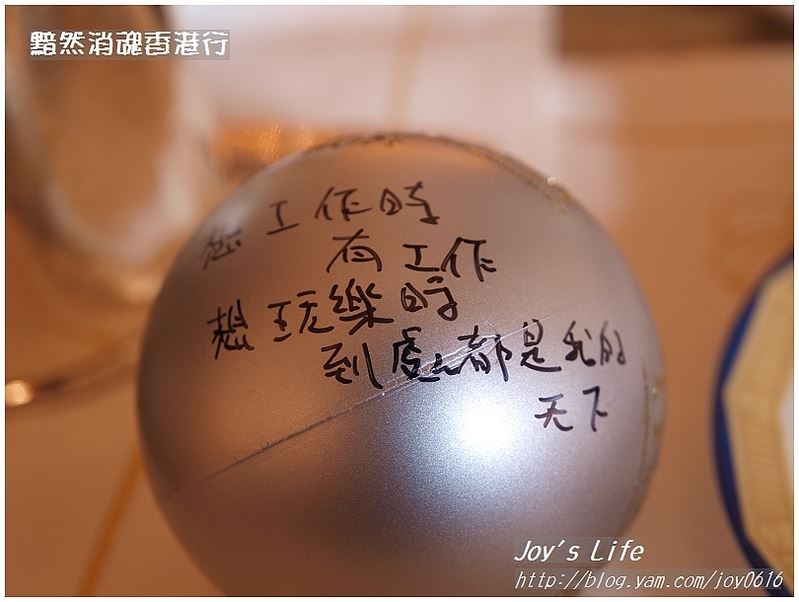 黯然消魂香港行
想工作時
有工作
想玩樂時
到處都是我的
天下
Joy's Life
http://blog.yam.com/joy0616